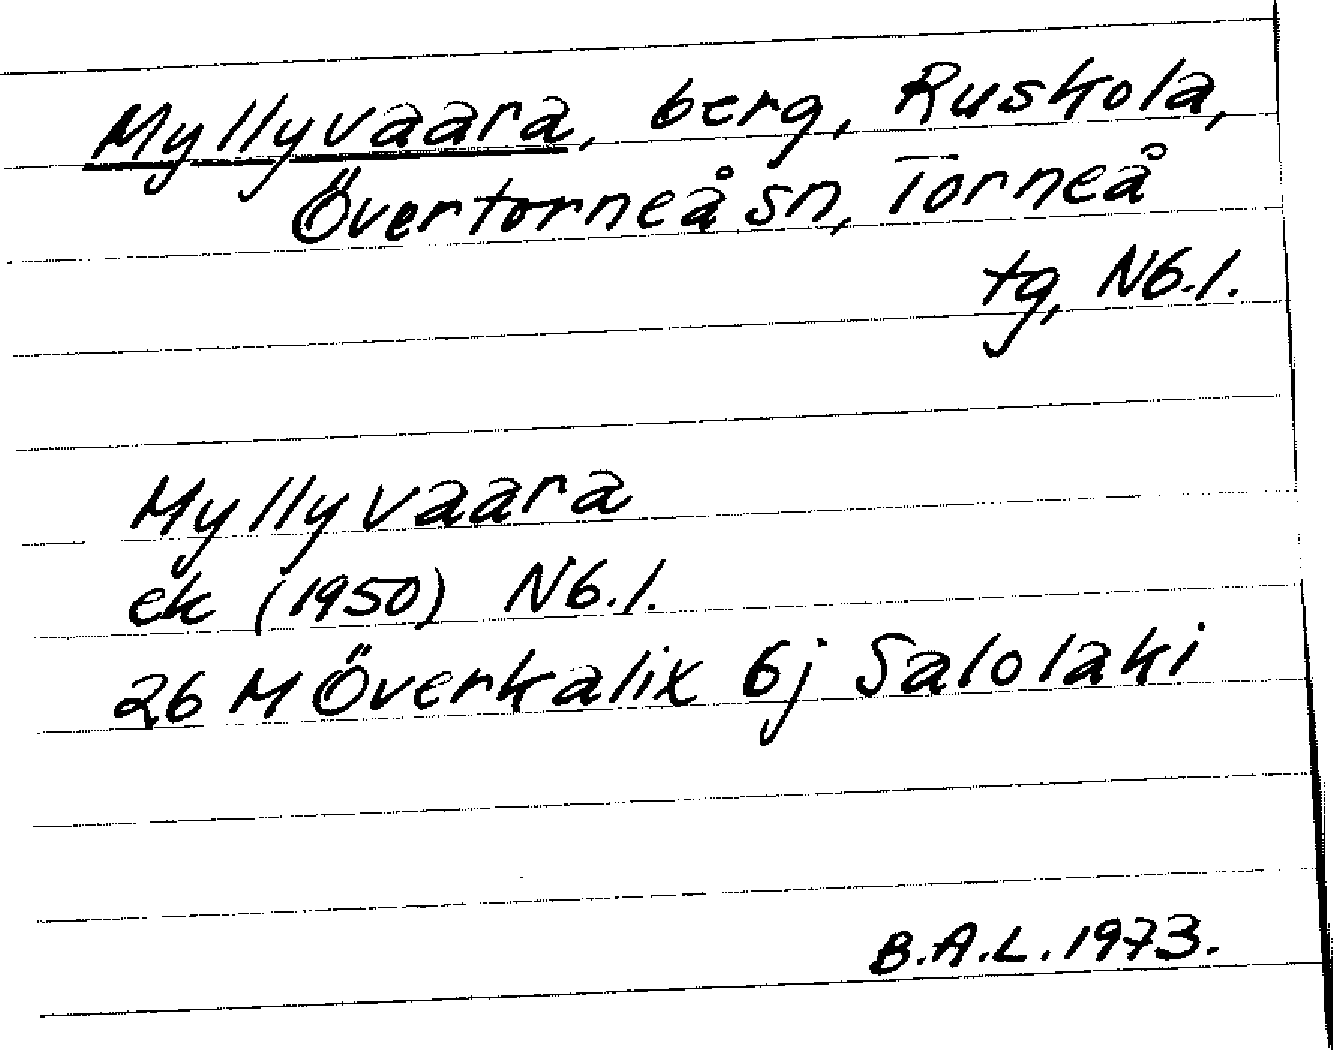 Myllyvaara, berg, Ruskola,
Övertorneå sn, Torneå
tg, Nb.l.
Myllyvaara
ek (1950) Nb.l.
26 M Överkalix 6j Salolaki
B.A.L. 1973.